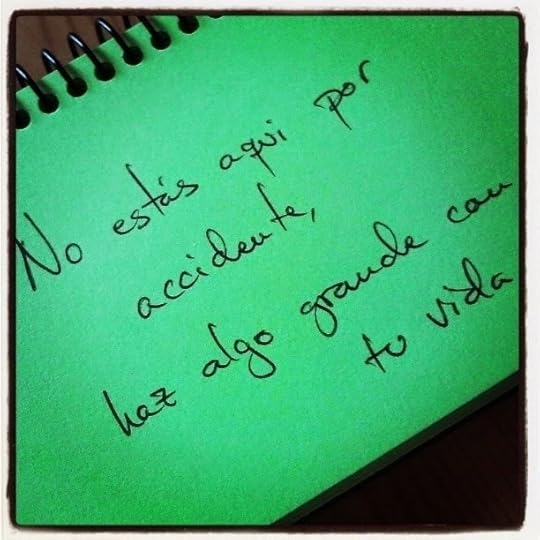 No estás aqui por
accidente,
haz algo grande con
tu vida